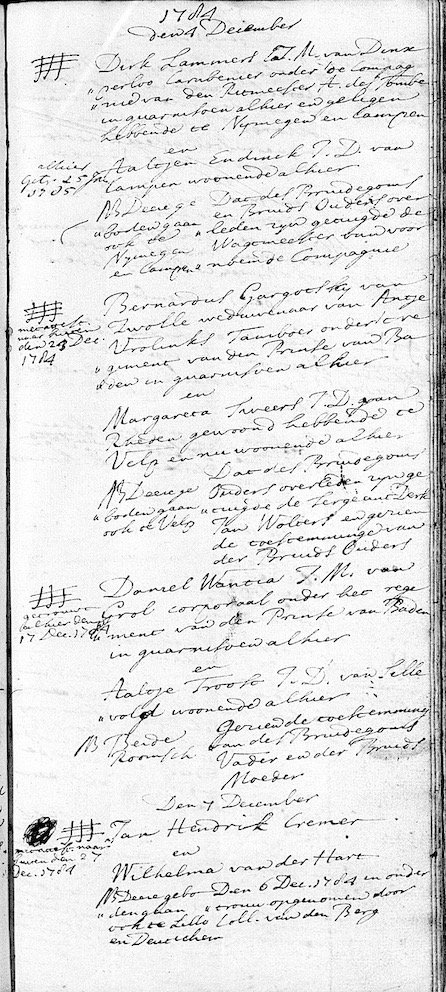 1784
den 4 December
Dirk Lammers J. M. van Dinx
"perloo Carabinier onder de Compag
"nie van den Ritmeester
in guarnisoen alhier en gelegen
hebbende te Nymegen en Campen
en
alhier
getr. 25
1785
Aaltjen Endinck J. D. van
Campen woonende alhier
NB Deeze ge
"boden gaan
ook te
Nymegen
en Campen
Dat des Bruidegoms
en Bruids Ouders over
"leden zyn getuigde de
Wagtmeester van voor
"n
beinde Compagnie
met attest.
naar
den 23 Dec.
1784
Bernardus Gargotsky van
Zwolle weduwenaar van Antje
Vrolinks Tamboer onder 't re
"giment van den Prinse van Ba
"den in guarnisoen alhier
en
Margareta Sweers J. D. van
Rheden gewoond hebbende te
Velp en nu woonende alhier
NB Deeze ge
"boden gaan
ook te Velp
Dat des Bruidegoms
Ouders overleden zyn ge
"tuigde de Sergeant Derk
Jan Wolters en gezien
de toestemminge van
der Bruids Ouders
getrouwt
alhier den
17 Dec. 1784
Daniel Wantia J. M. van
Grol corporaal onder het rege
"ment van den Prinse van Baden
in guarnisoen alhier
en
Aaltje Troost J. D. van Selle
"vold woonende alhier
NB Beide
Roomsch
Geziende toestemming
van des Bruidegoms
Vader en der Bruids
Moeder
Den 7 December
met attest. naar
den 27
Dec. 1784
Jan Hendrik Cremer
en
Wilhelma van der Hart
NB Deeze gebo
"den gaan
ook te
en Deutichem
Den 6 Dec. 1784 in onder
"trouw opgenomen door
Coll. van den Berg